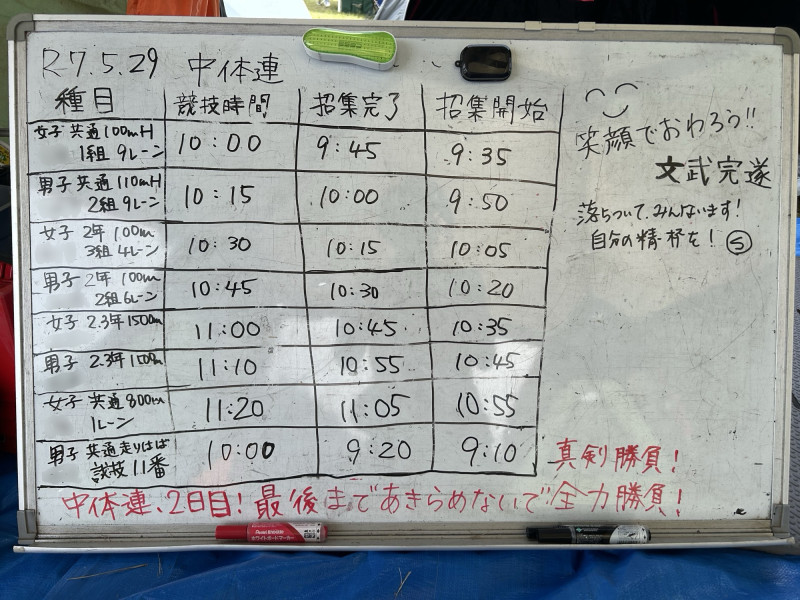 R7.5.29 中体連
種目 競技時間 招集完了 招集開始
女子 共通100mH
1組 9レーン
10:00 9:45 9:35
男子 共通110mH
2組 9レーン
10:15 10:00 9:50
女子 2年 100m
3組 4レーン
10:30 10:15 10:05
男子 2年 100m
2組 6レーン
10:45 10:30 10:20
女子 2.3年1500m 11:00 10:45 10:35
男子 2.3年1500m 11:10 10:55 10:45
女子 共通800m
1レーン
11:20 11:05 10:55
男子 共通走りはば
試技11番
10:00 9:20 9:10
笑顔でおわろう!!
文武完遂
落ちついて、みんないます!
自分の精一杯を! S
真剣勝負!
中体連、2日目!最後まであきらめないで全力勝負!
ホワイトボードマーカー